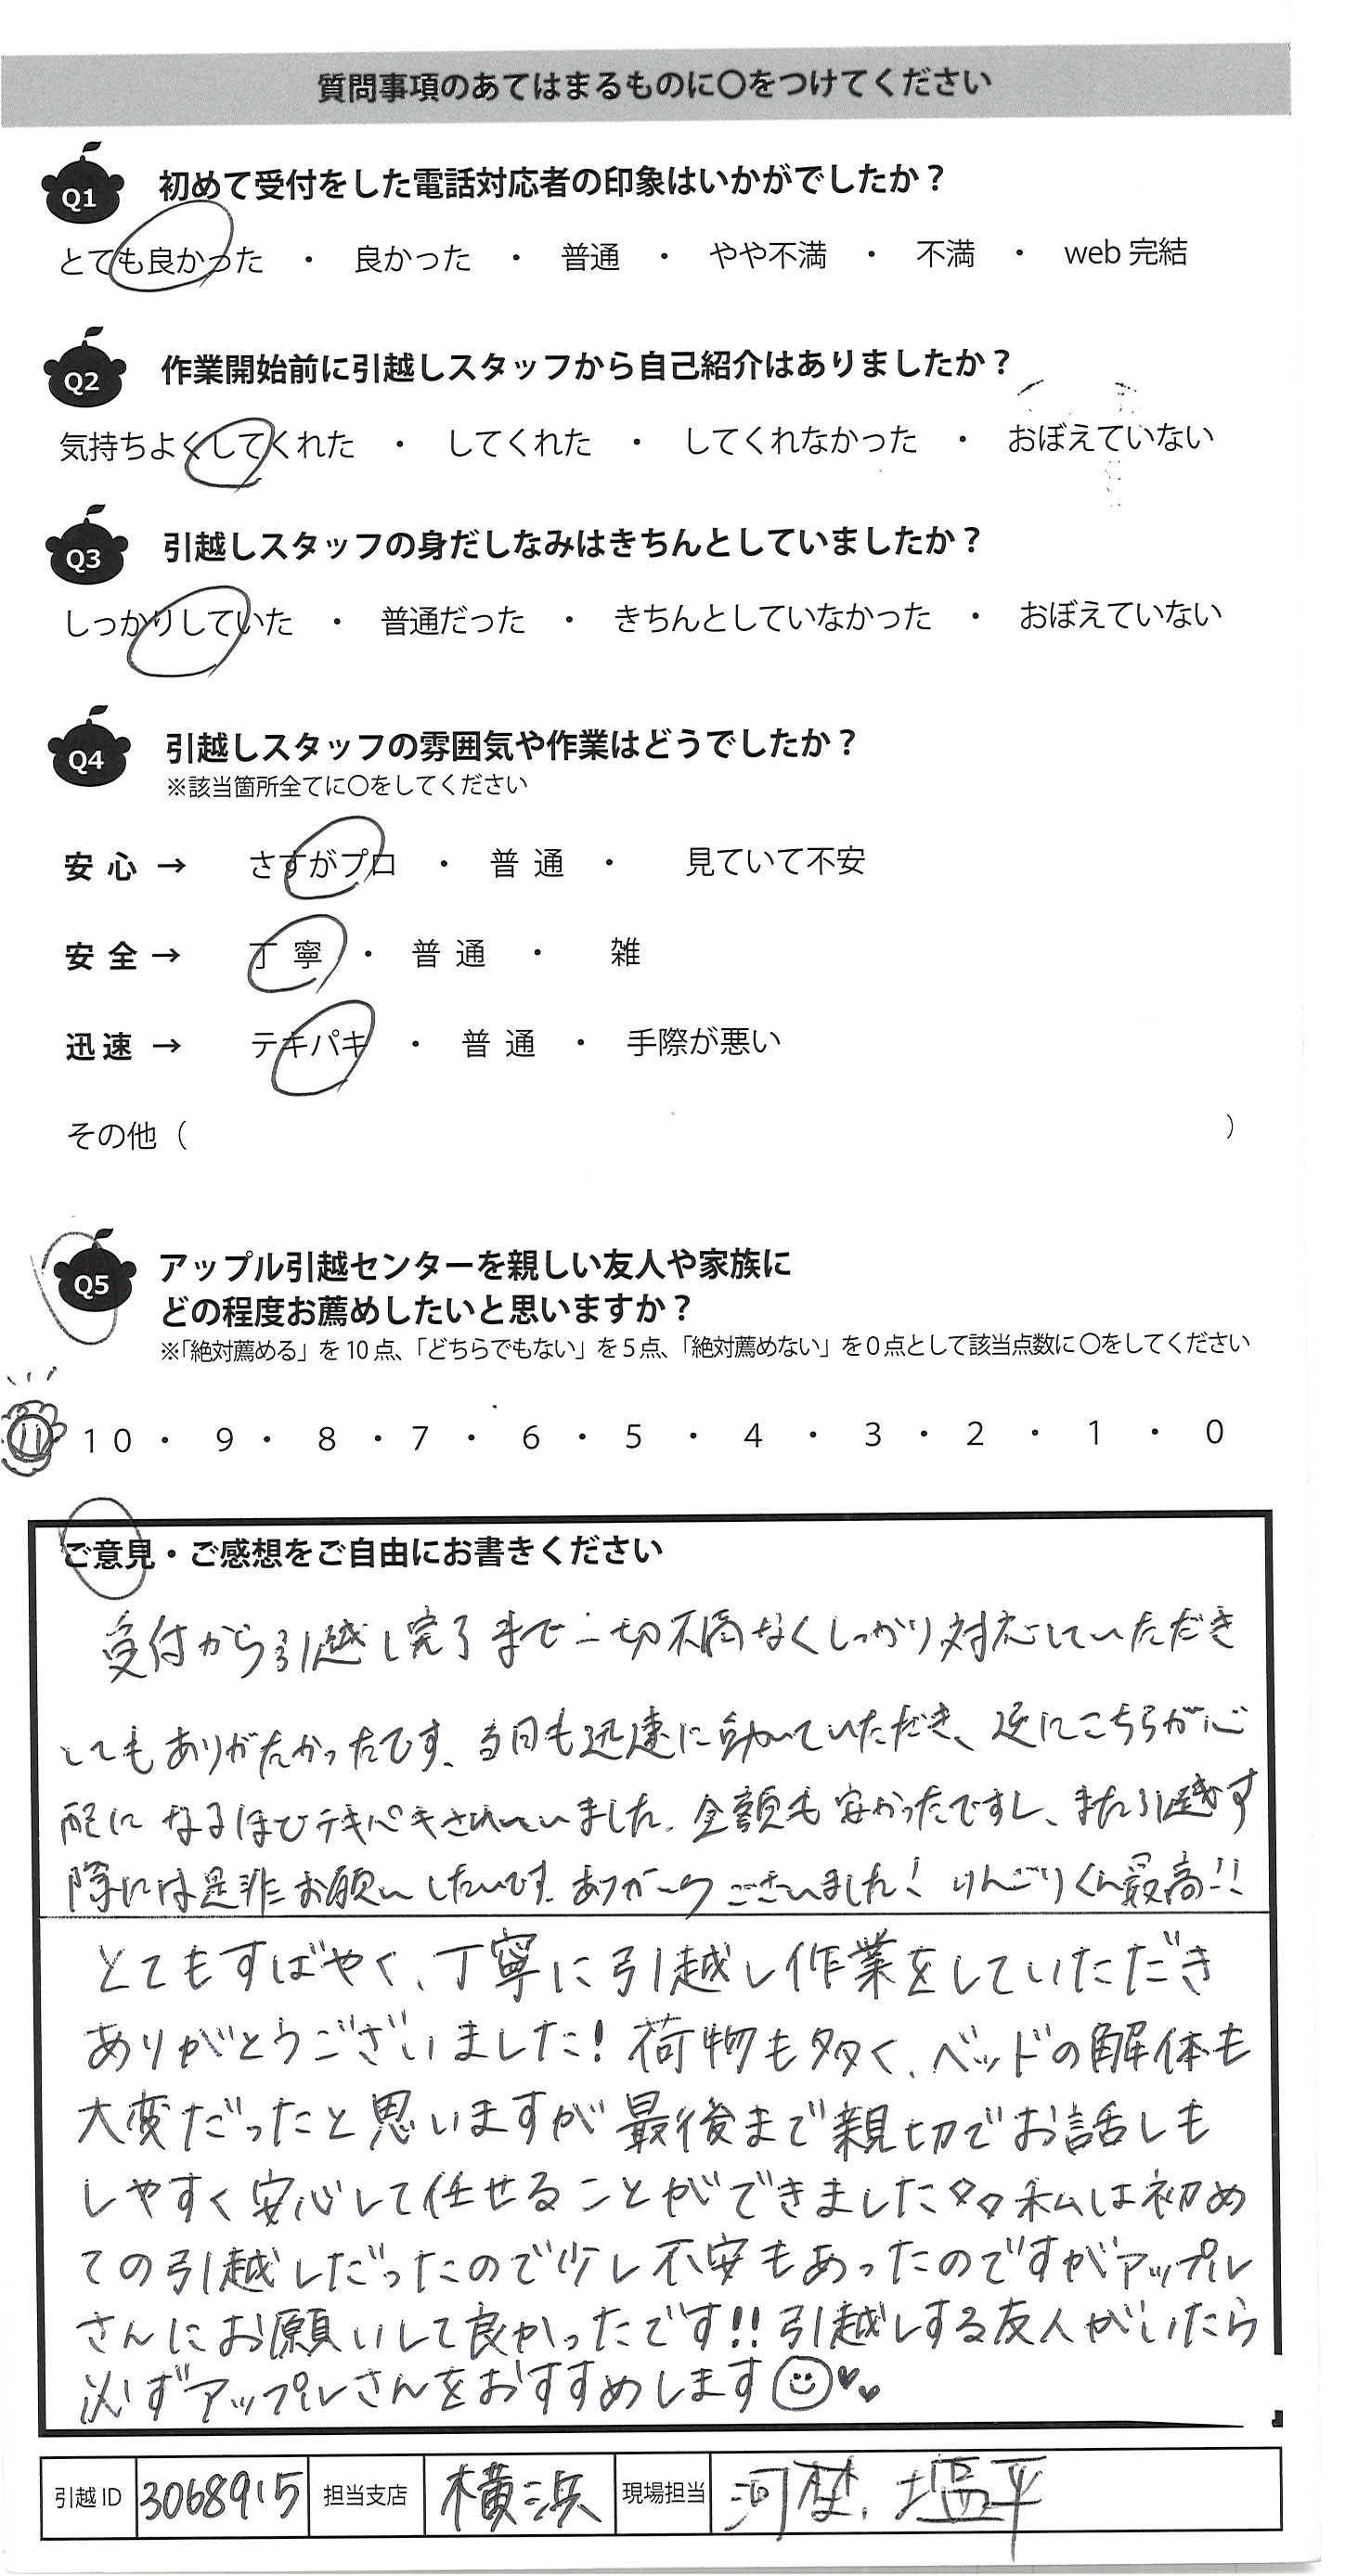 質問事項のあてはまるものに〇をつけてください
Q1 初めて受付をした電話対応者の印象はいかがでしたか？
とても良かった ・ 良かった ・ 普通 ・ やや不満 ・ 不満 ・ web 完結
Q2 作業開始前に引越しスタッフから自己紹介はありましたか？
気持ちよくしてくれた ・ してくれた ・ してくれなかった ・ おぼえていない
Q3 引越しスタッフの身だしなみはきちんとしていましたか？
しっかりしていた ・ 普通だった ・ きちんとしていなかった ・ おぼえていない
Q4 引越しスタッフの雰囲気や作業はどうでしたか？
※該当箇所全てに〇をしてください
安心 → さすがプロ ・ 普通 ・ 見ていて不安
安全 → 丁寧 ・ 普通 ・ 雑
迅速 → テキパキ ・ 普通 ・ 手際が悪い
その他（ ）
Q5 アップル引越センターを親しい友人や家族に
どの程度お薦めしたいと思いますか？
※「絶対薦める」を10点、「どちらでもない」を5点、「絶対薦めない」を0点として該当点数に〇をしてください
11 10 ・ 9 ・ 8 ・ 7 ・ 6 ・ 5 ・ 4 ・ 3 ・ 2 ・ 1 ・ 0
ご意見・ご感想をご自由にお書きください
受付から引越し完了まで一切不満なくしっかり対応していただき
とてもありがたかったです。当日も迅速に動いていただき、逆にこちらが心
配になるほどテキパキされていました。金額も安かったですし、また引越す
際には是非お願いしたいです。ありがとうございました！りんごりくん最高!!
とてもすばやく、丁寧に引越し作業をしていただき
ありがとうございました！荷物も多く、ベッドの解体も
大変だったと思いますが最後まで親切でお話しも
しやすく安心して任せることができました 私は初め
ての引越しだったので少し不安もあったのですがアップル
さんにお願いして良かったです!! 引越しする友人がいたら
必ずアップルさんをおすすめします
引越ID 3068915 担当支店 横浜 現場担当 河埜、塩平